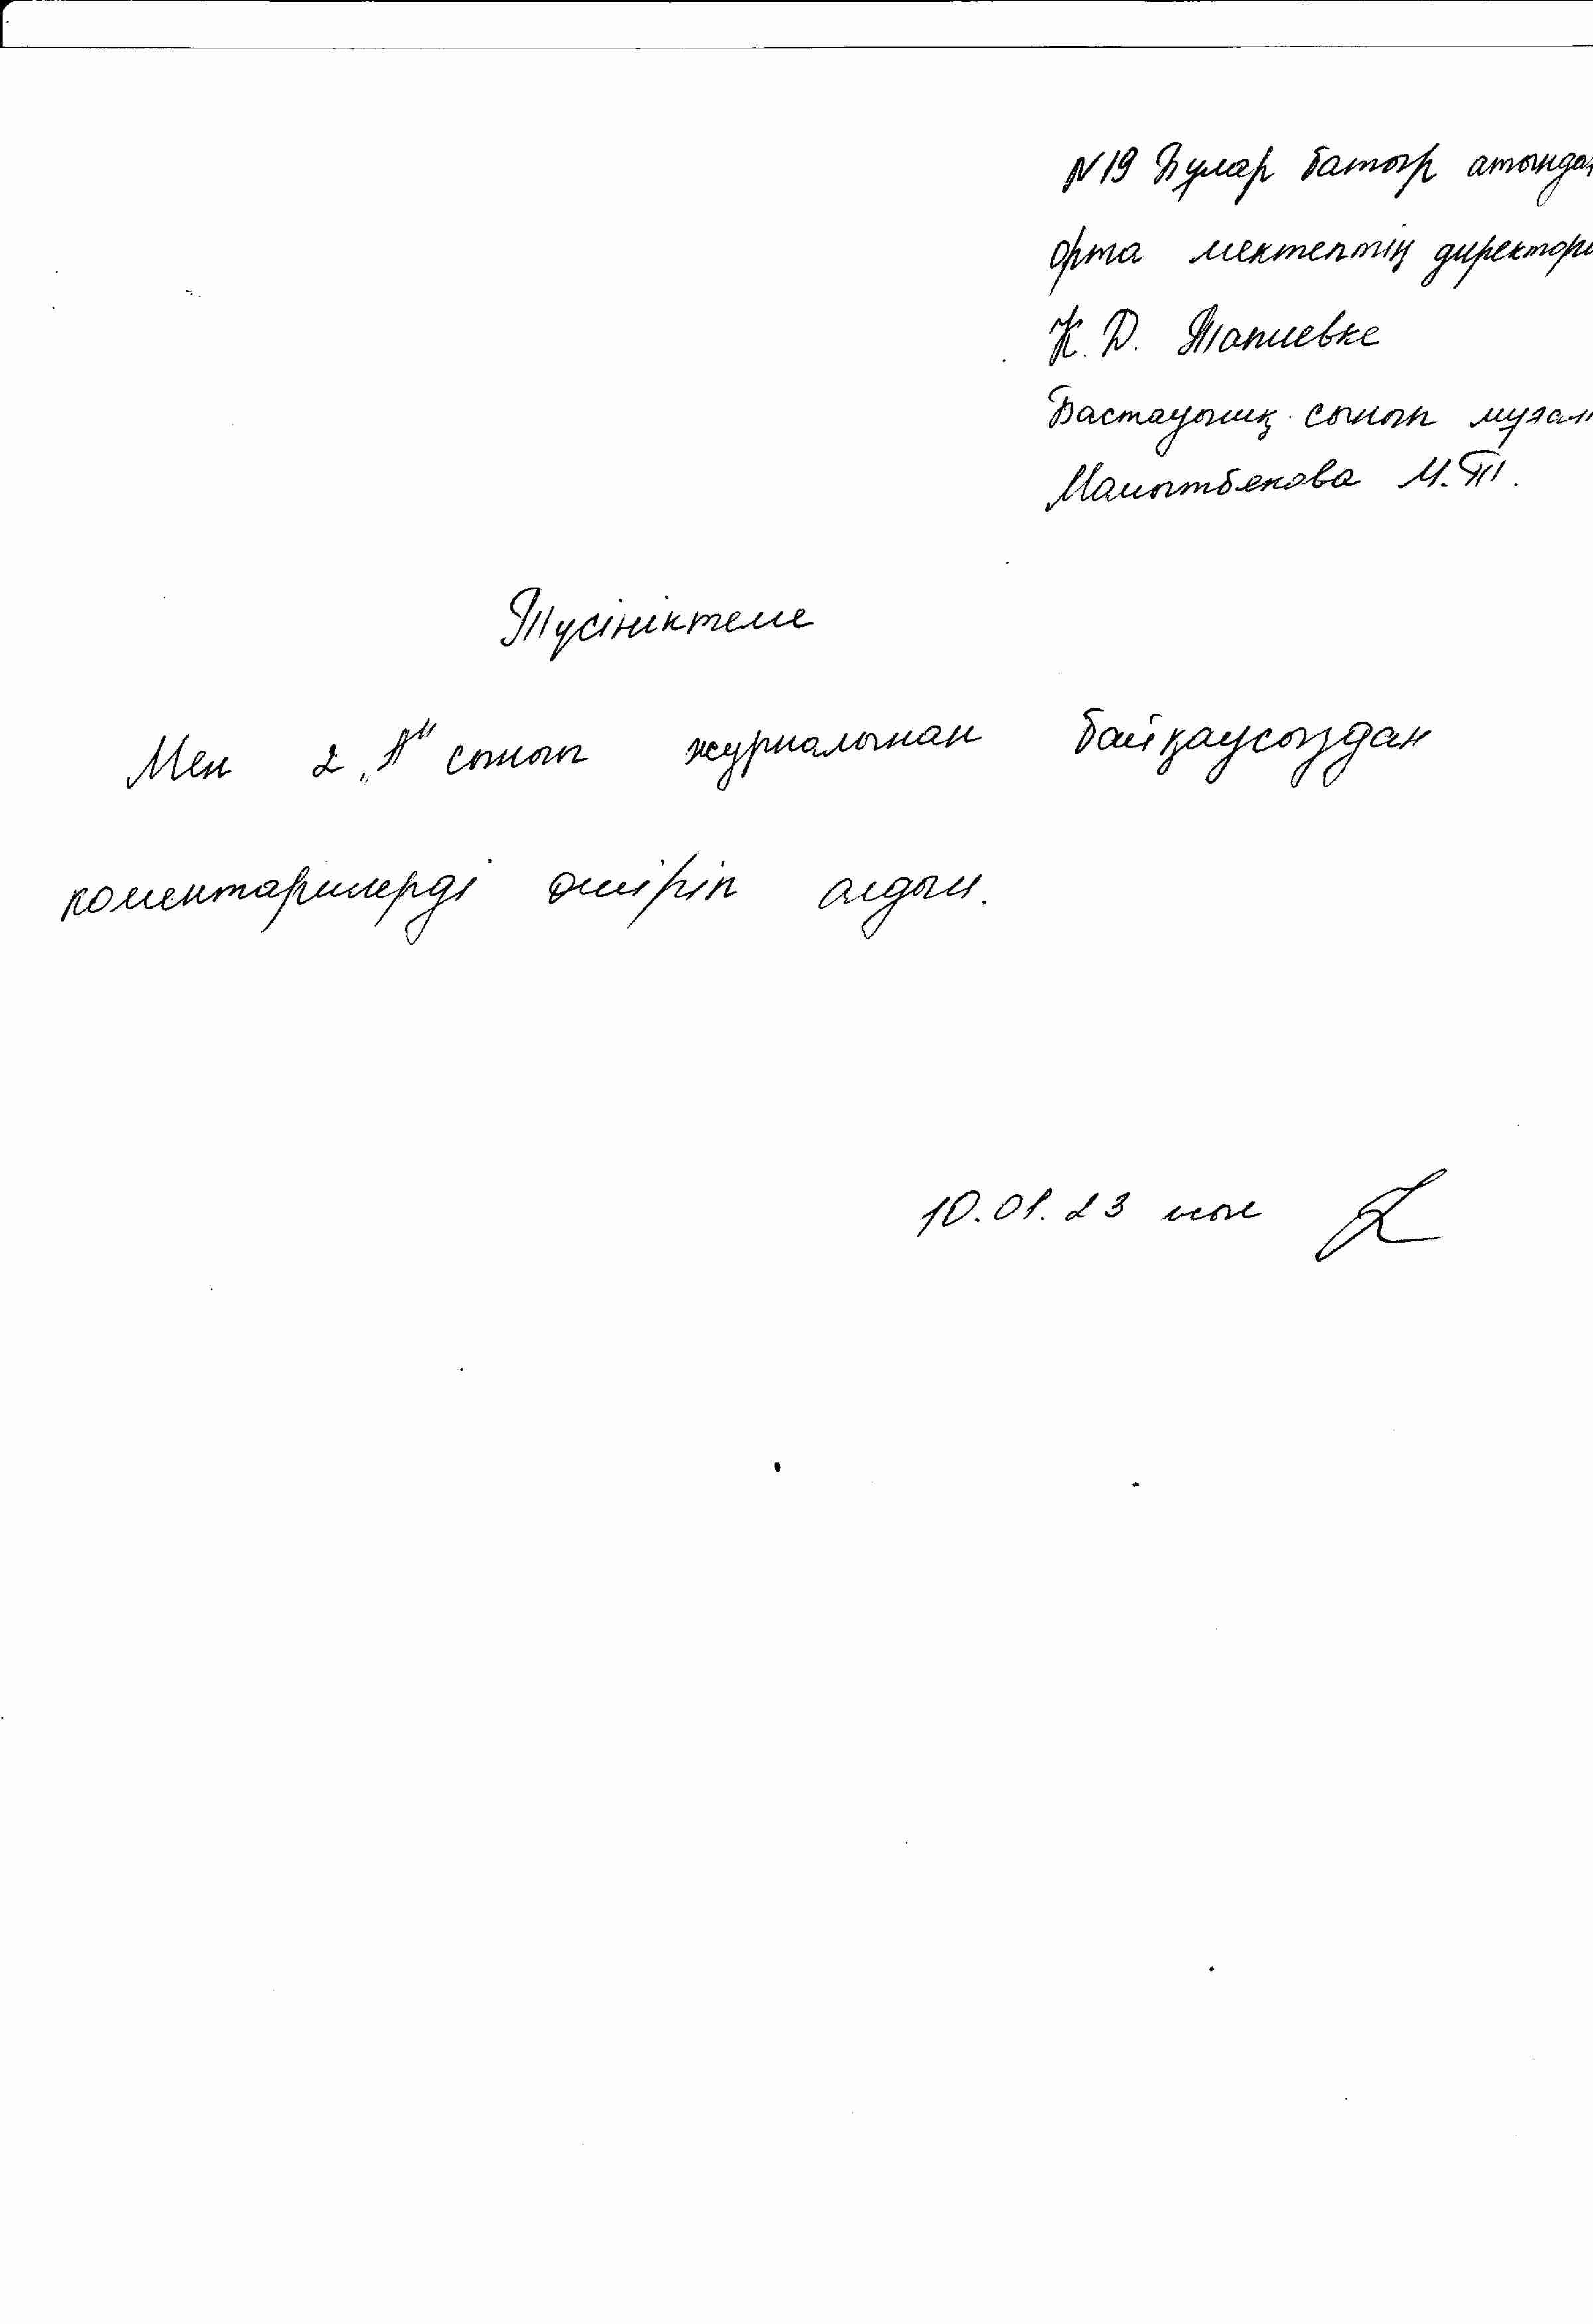 N19 Бұлар батыр атында
орта мектептің директоры
К.Д. Тапиевке
Бастауыш сынып мұғал
Мамытбекова М.Т.
Түсініктеме
Мен 2 „А" сынып журналынан байқаусыздан
коментарилерді өшіріп алдым.
10.01.23 жыл